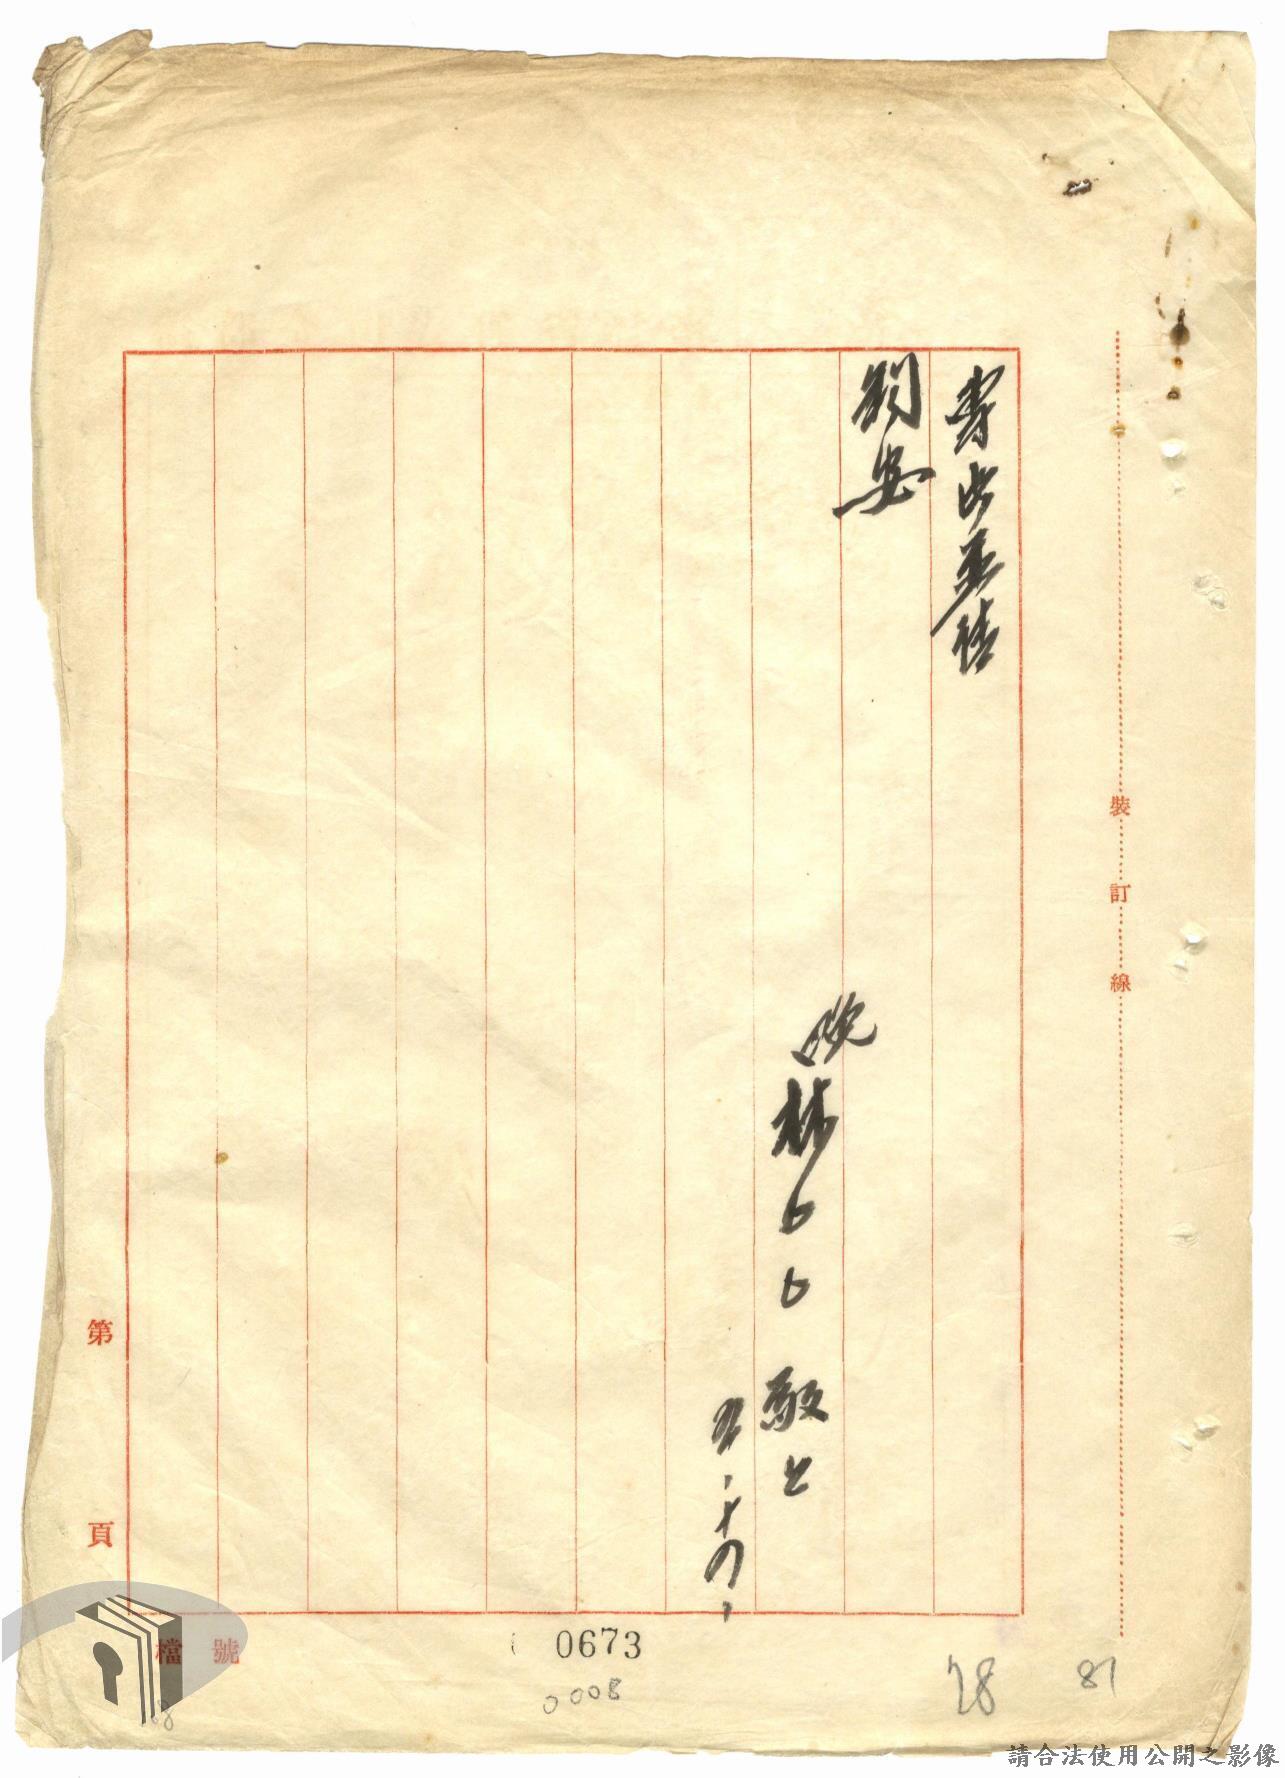 專此並請
鈞安
晚林ㄙㄙ敬上
五、十四、
裝訂線
第頁
檔號
0673
0008
28
81
請合法使用公開之影像